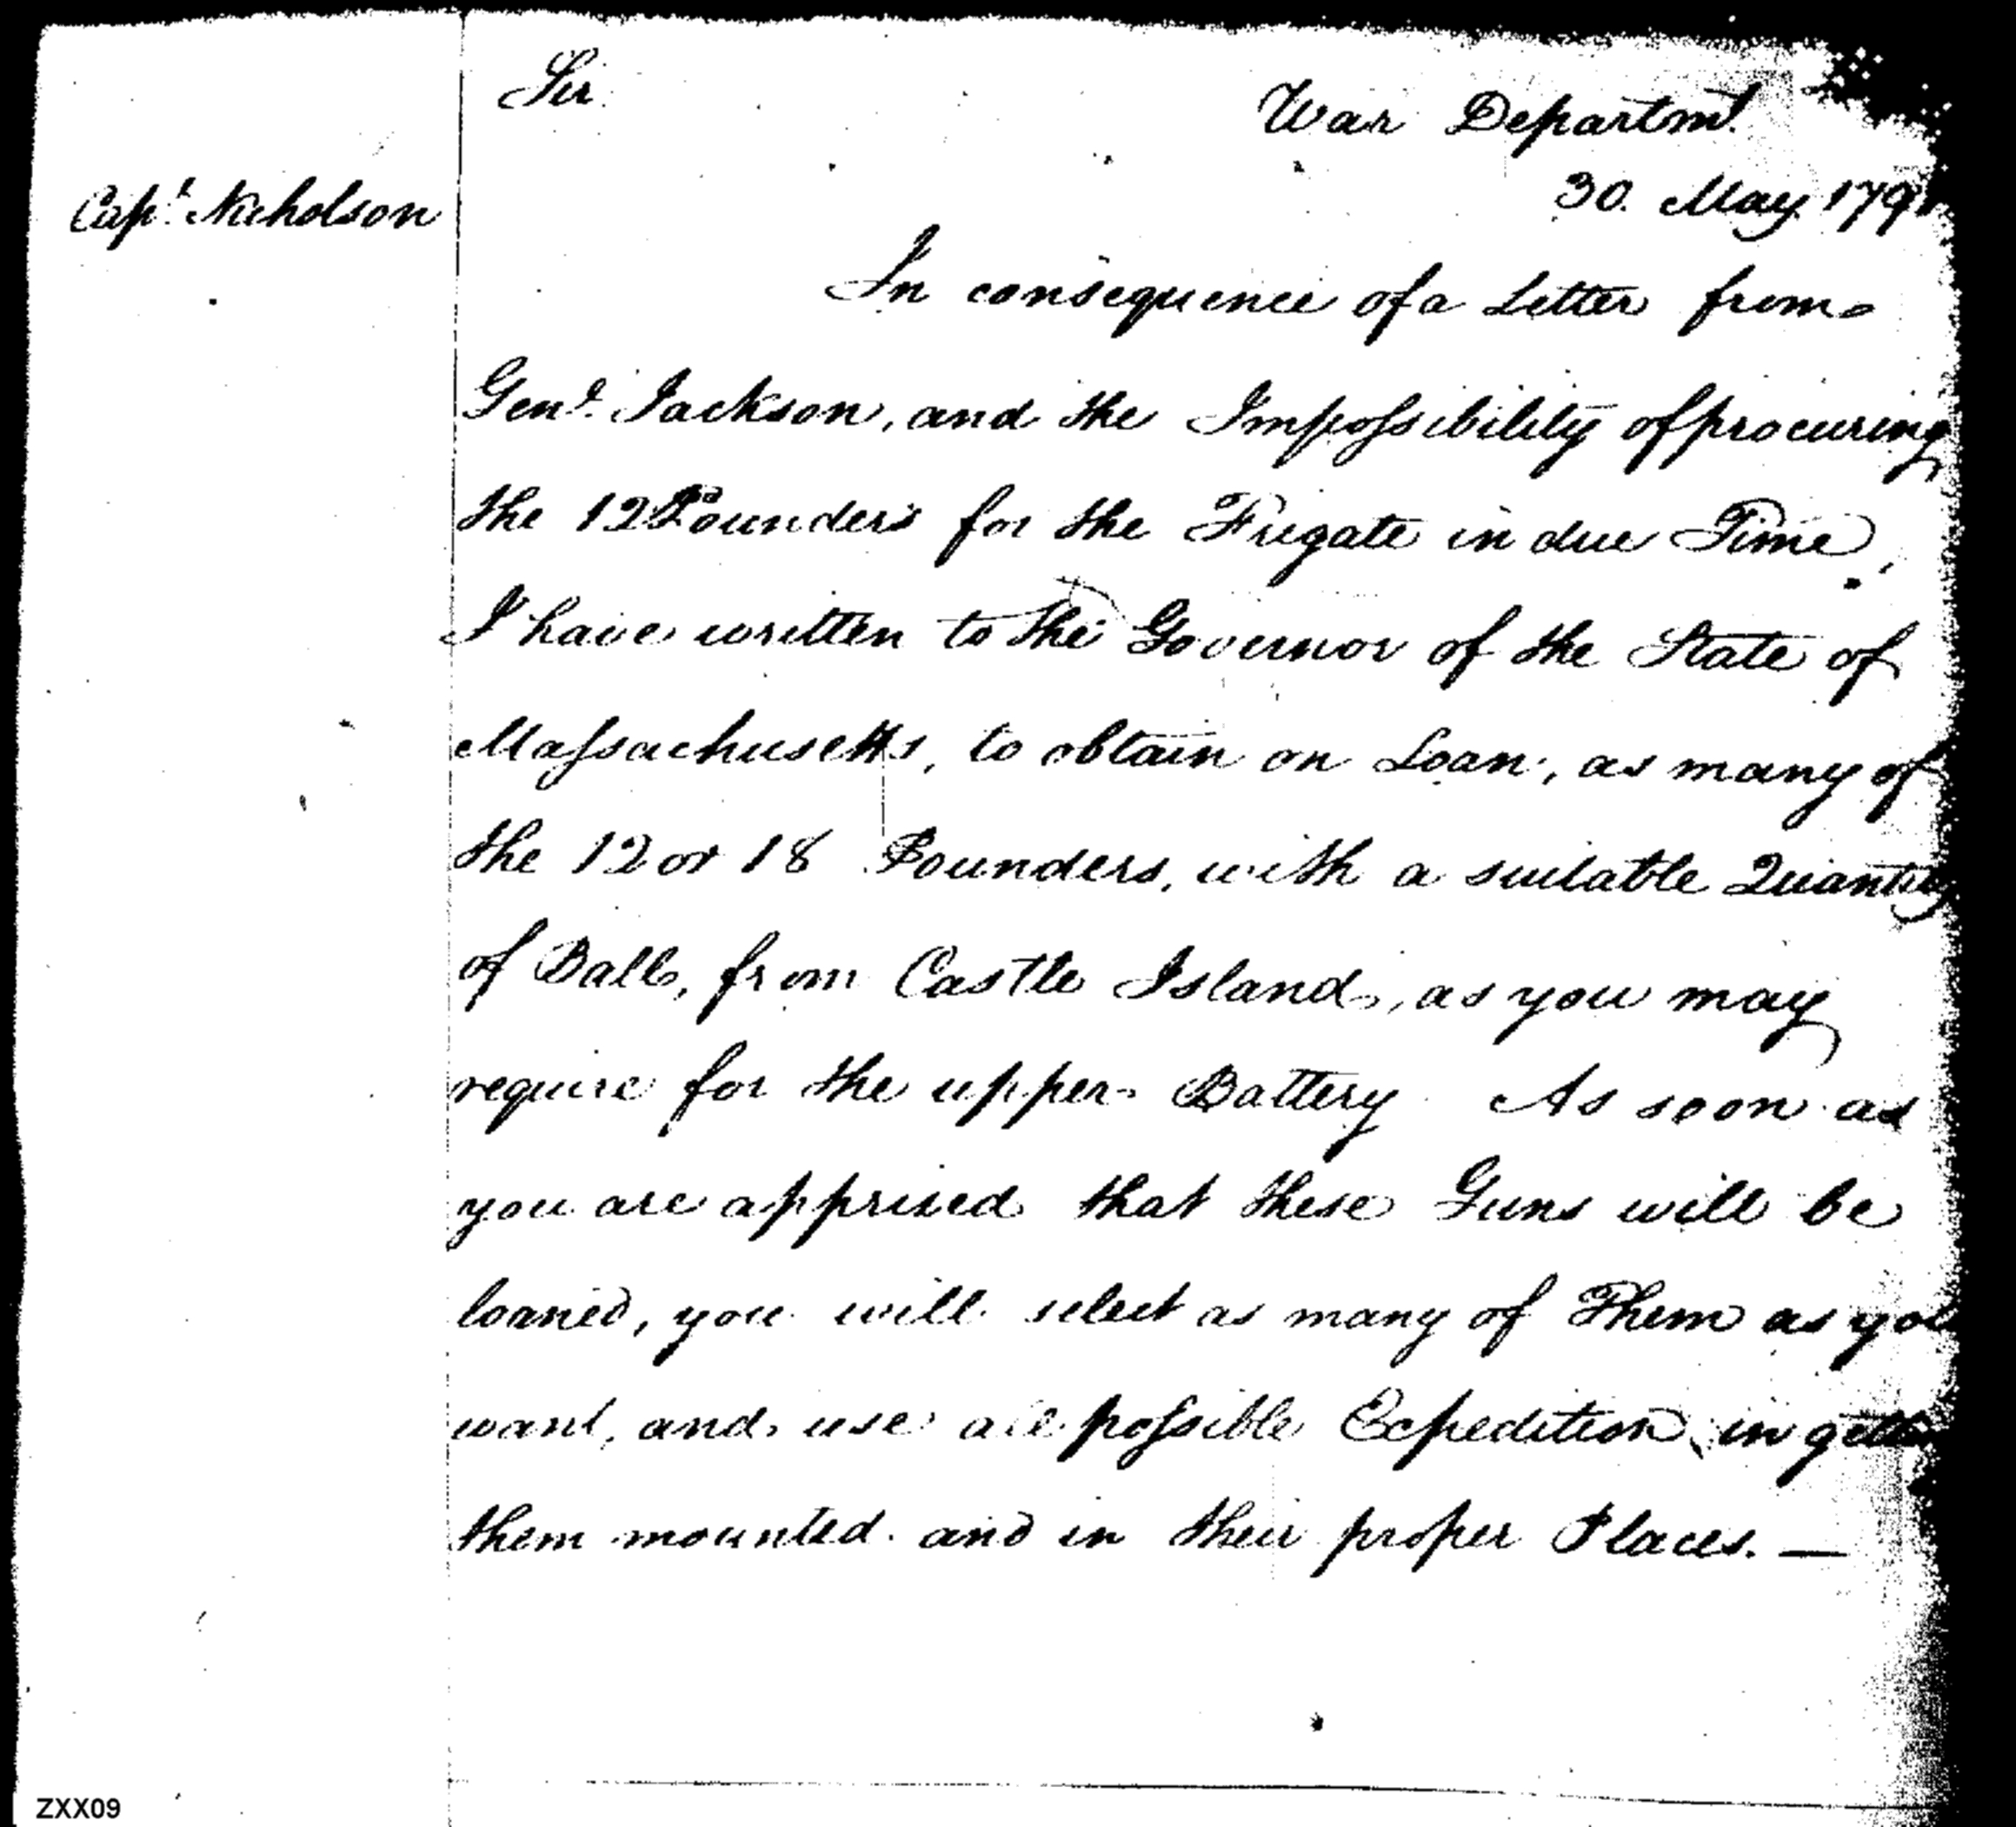 Sir
War Departmt.
30. May 179
Capt. Nicholson
In consequence of a Letter from
Genl. Jackson, and the Impossibility of procuring
the 12 Pounders for the Frigate in due Time,
I have written to the Governor of the State of
Massachusetts, to obtain on Loan, as many of
the 12 or 18 Pounders, with a suitable Quantity
of Balls, from Castle Island, as you may
require for the upper Battery As soon as
you are apprised that these Guns will be
loaned, you will select as many of Them as you
want, and use all possible Expedition, in gett
them mounted and in their proper Places. —
ZXX09